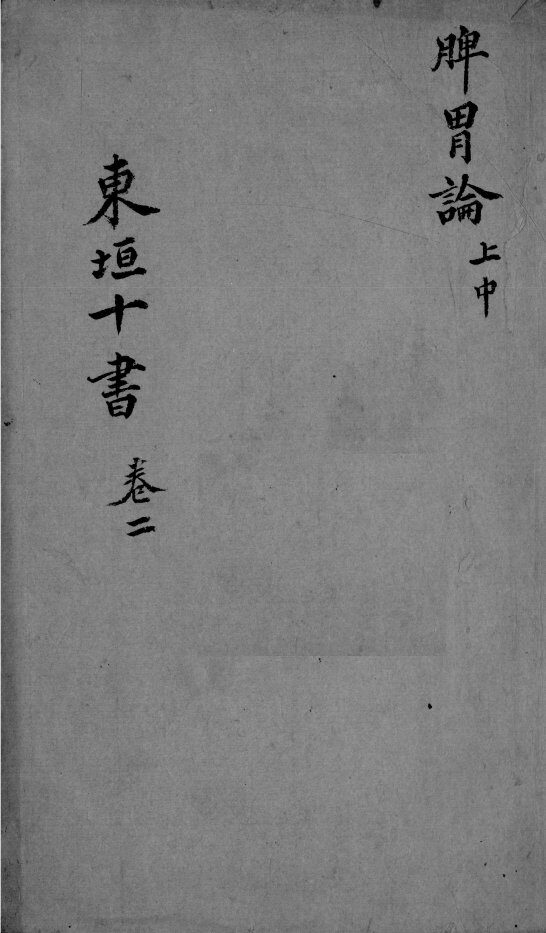 脾胃論 上中
東垣十書 卷二